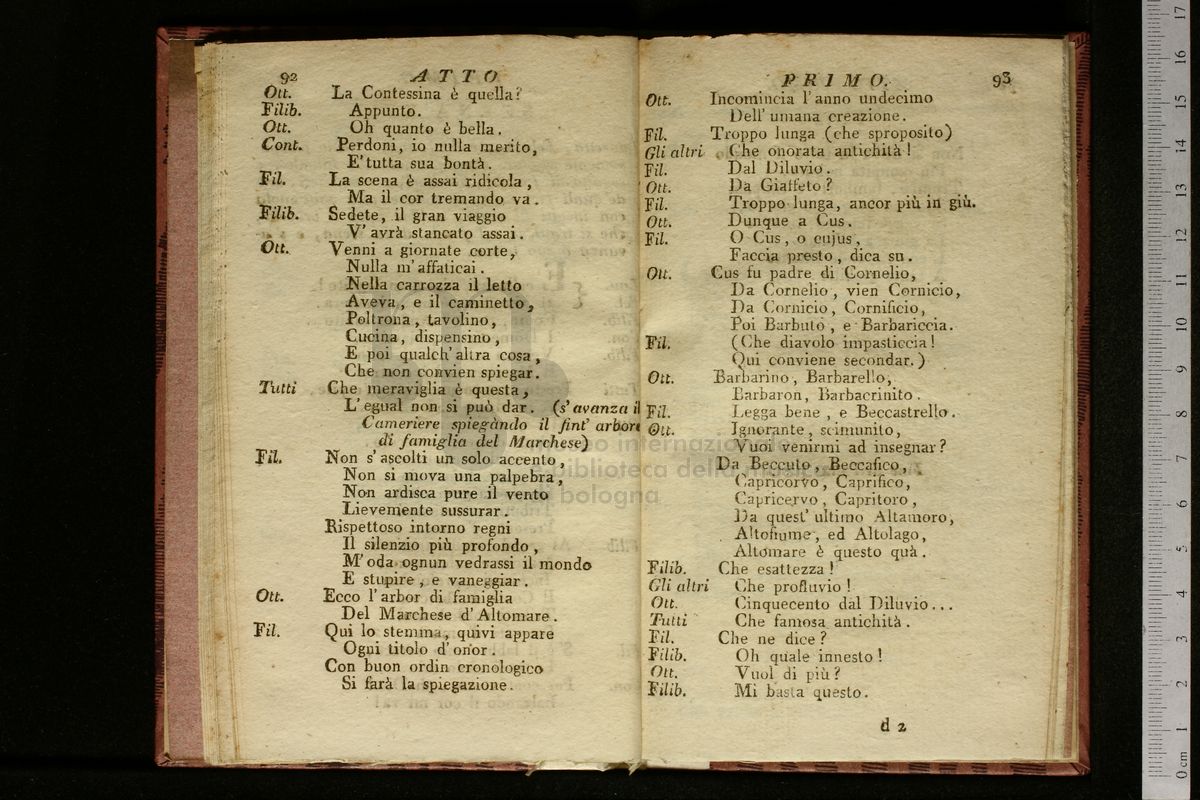 92 ATTO
Ott. La Contessina è quella?
Filib. Appunto.
Ott. Oh quanto è bella.
Cont. Perdoni, io nulla merito,
E' tutta sua bontà.
Fil. La scena è assai ridicola,
Ma il cor tremando va.
Filib. Sedete, il gran viaggio
V' avrà stancato assai.
Ott. Venni a giornate corte,
Nulla m' affaticai.
Nella carrozza il letto
Aveva, e il caminetto,
Poltrona, tavolino,
Cucina, dispensino,
E poi qualch' altra cosa,
Che non convien spiegar.
Tutti Che meraviglia è questa,
L' egual non si può dar. (s' avanza il
Cameriere spiegàndo il fint' arbore
di famiglia del Marchese)
Fil. Non s' ascolti un solo accento,
Non si mova una palpebra,
Non ardisca pure il vento
Lievemente sussurar.
Rispettoso intorno regni
Il silenzio più profondo,
M' oda ognun vedrassi il mondo
E stupire, e vaneggiar.
Ott. Ecco l' arbor di famiglia
Del Marchese d' Altomare.
Fil. Qui lo stemma, quivi appare
Ogni titolo d' onor.
Con buon ordin cronologico
Si farà la spiegazione.
PRIMO. 93
Ott. Incomincia l' anno undecimo
Dell' umana creazione.
Fil. Troppo lunga (che sproposito)
Gli altri Che onorata antichità!
Fil. Dal Diluvio.
Ott. Da Giaffeto?
Fil. Troppo lunga, ancor più in giù.
Ott. Dunque a Cus.
Fil. O Cus, o cujus,
Faccia presto, dica su.
Ott. Cus fu padre di Cornelio,
Da Cornelio, vien Cornicio,
Da Cornicio, Cornificio,
Poi Barbuto, e Barbariccia.
Fil. (Che diavolo impasticcia!
Qui conviene secondar.)
Ott. Barbarino, Barbarello,
Barbaron, Barbacrinito.
Fil. Legga bene, e Beccastrello.
Ott. Ignorante, scimunito,
Vuoi venirmi ad insegnar?
Da Beccuto, Beccafico,
Capricorvo, Caprifico,
Capricervo, Capritoro,
Da quest' ultimo Altamoro,
Altofiume, ed Altolago,
Altomare è questo quà.
Filib. Che esattezza!
Gli altri Che profluvio!
Ott. Cinquecento dal Diluvio...
Tutti Che famosa antichità.
Fil. Che ne dice?
Filib. Oh quale innesto!
Ott. Vuol di più?
Filib. Mi basta questo.
d 2
museo internazionale
e biblioteca della musica
di bologna
0 cm 1 2 3 4 5 6 7 8 9 10 11 12 13 14 15 16 17